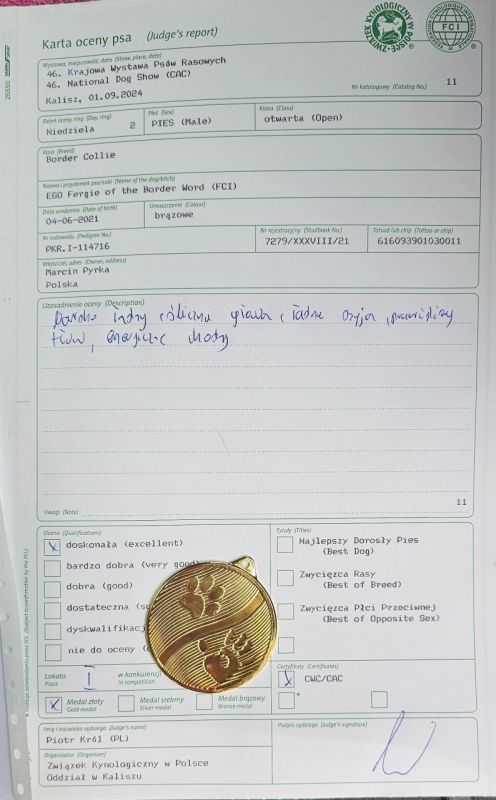 Karta oceny psa (Judge's report)
ZWIĄZEK KYNOLOGICZNY W POLSCE
FEDERATION CYNOLOGIQUE INTERNATIONALE
FCI
26550
Wystawa, miejscowość, data (Show, place, date)
46. Krajowa Wystawa Psów Rasowych
46. National Dog Show (CAC)
Kalisz, 01.09.2024
Nr katalogowy (Catalog No.) 11
Dzień oceny, ring (Day, ring) Płeć (Sex) Klasa (Class)
Niedziela 2 PIES (Male) otwarta (Open)
Rasa (Breed)
Border Collie
Nazwa i przydomek psa/suki (Name of the dog/bitch)
EGO Fergie of the Border Word (FCI)
Data urodzenia (Date of birth) Umaszczenie (Colour)
04-06-2021 brązowe
Nr rodowodu (Pedigree No.) Nr rejestracyjny (Studbook No.) Tatuaż lub chip (Tattoo or chip)
PKR.I-114716 7279/XXXVIII/21 616093901030011
Właściciel, adres (Owner, address)
Marcin Pyrka
Polska
Uzasadnienie oceny (Description)
ładny śliczna głowa, ładne szyja, prawidłowy
tułów, energiczne chody
11
Uwagi (Note)
Ocena (Qualifications) Tytuły (Titles)
x doskonała (excellent)
bardzo dobra (very good
dobra (good)
dostateczna (su
dyskwalifikacj
nie do oceny (
Najlepszy Dorosły Pies
(Best Dog)
Zwycięzca Rasy
(Best of Breed)
Zwycięzca Płci Przeciwnej
(Best of Opposite Sex)
Lokata I w konkurencji
Place in competition
Certyfikaty (Certificates)
x CWC/CAC
*
x Medal złoty Medal srebrny Medal brązowy
Gold medal Silver medal Bronze medal
Imię i nazwisko sędziego (Judge's name) Podpis sędziego (Judge's signature)
Piotr Król (PL)
Organizator (Organizer)
Związek Kynologiczny w Polsce
Oddział w Kaliszu